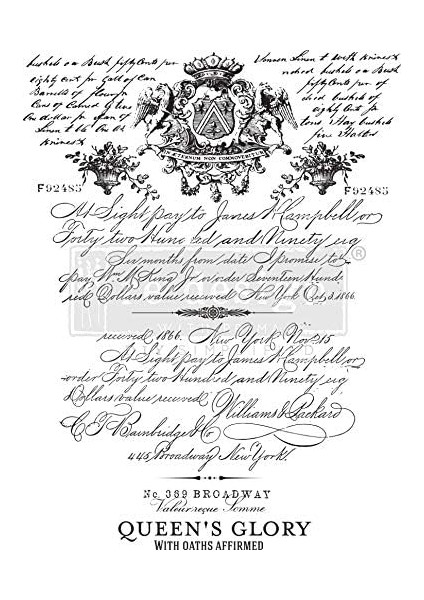 bushels on Bush fifty Cents per
eighty Cent for Gall of Can
Barrells of flour for
Cans of Colored Glass
One dollar for
Linen
Kinness
Linen
bushels on Bush
fifty Cents per
bushels of
eighty Cent
Hay bushels
ÆTERNUM NON COMMOVEBITUR
F92485
F92485
At Sight pay to James W Campbell or
Forty two Hundred and Ninety eig
Six months from date I promise to
pay, Wm. M. King Jr or order Seventeen Hund
red Dollars value received New York Oct 3, 1866.
received 1866. New York Nov 15
At Sight pay to James W Campbell or
order Forty two Hundred and Ninety eig
Dollars value received
Williams & Packard
C. T. Bainbridge & Co
445 Broadway New York.
No. 389 BROADWAY
Valeur reçue Somme
QUEEN'S GLORY
WITH OATHS AFFIRMED